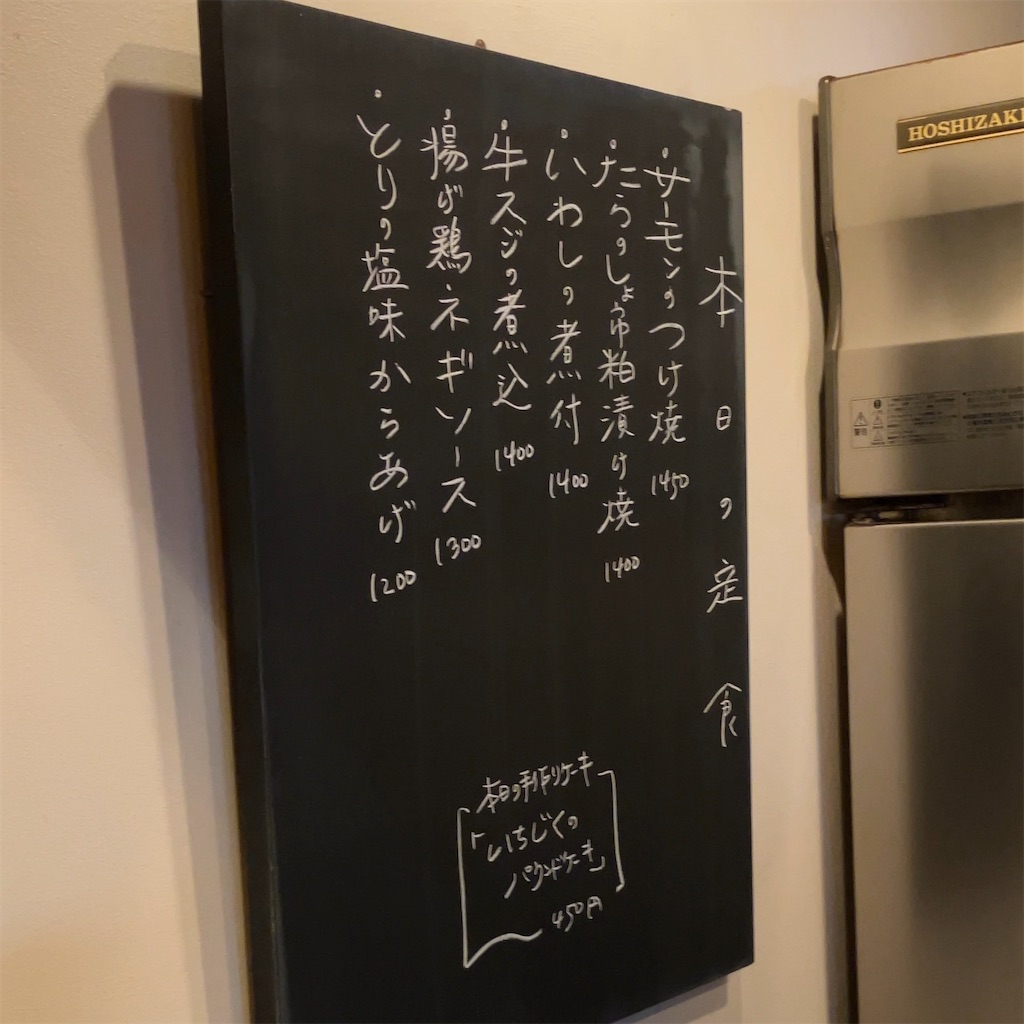 本日の定食
・サーモンのつけ焼 1450
・たらのしょうゆ粕漬け焼 1400
・いわしの煮付 1400
・牛スジの煮込 1400
・揚げ鶏ネギソース 1300
・とりの塩味からあげ 1200
本日の手作りケーキ
「いちじくの
パウンドケーキ」
450円
HOSHIZAKI